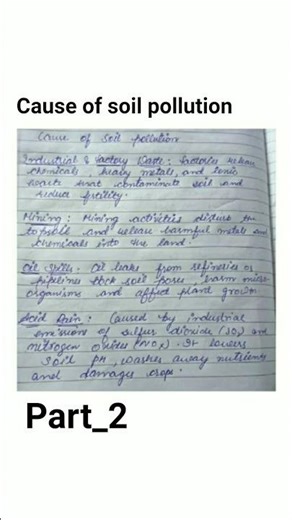 Cause of soil pollution
Cause of Soil pollution
Industrial & factory Waste : factories release
chemicals, heavy metals, and toxic
waste that contaminate soil and
reduce fertility.
Mining : Mining activities the
topsoil and release harmful metals and
chemicals into the land.
Oil Spills : Oil leaks from refineries or
pipelines soil pores harm micro
organisms and affect plant growth
Acid Rain : Caused by industrial
emissions of sulfur dioxide (SO2) and
nitrogen oxides (NOx). It lowers
Soil pH, washes away nutrients
and damages crops.
Part_2